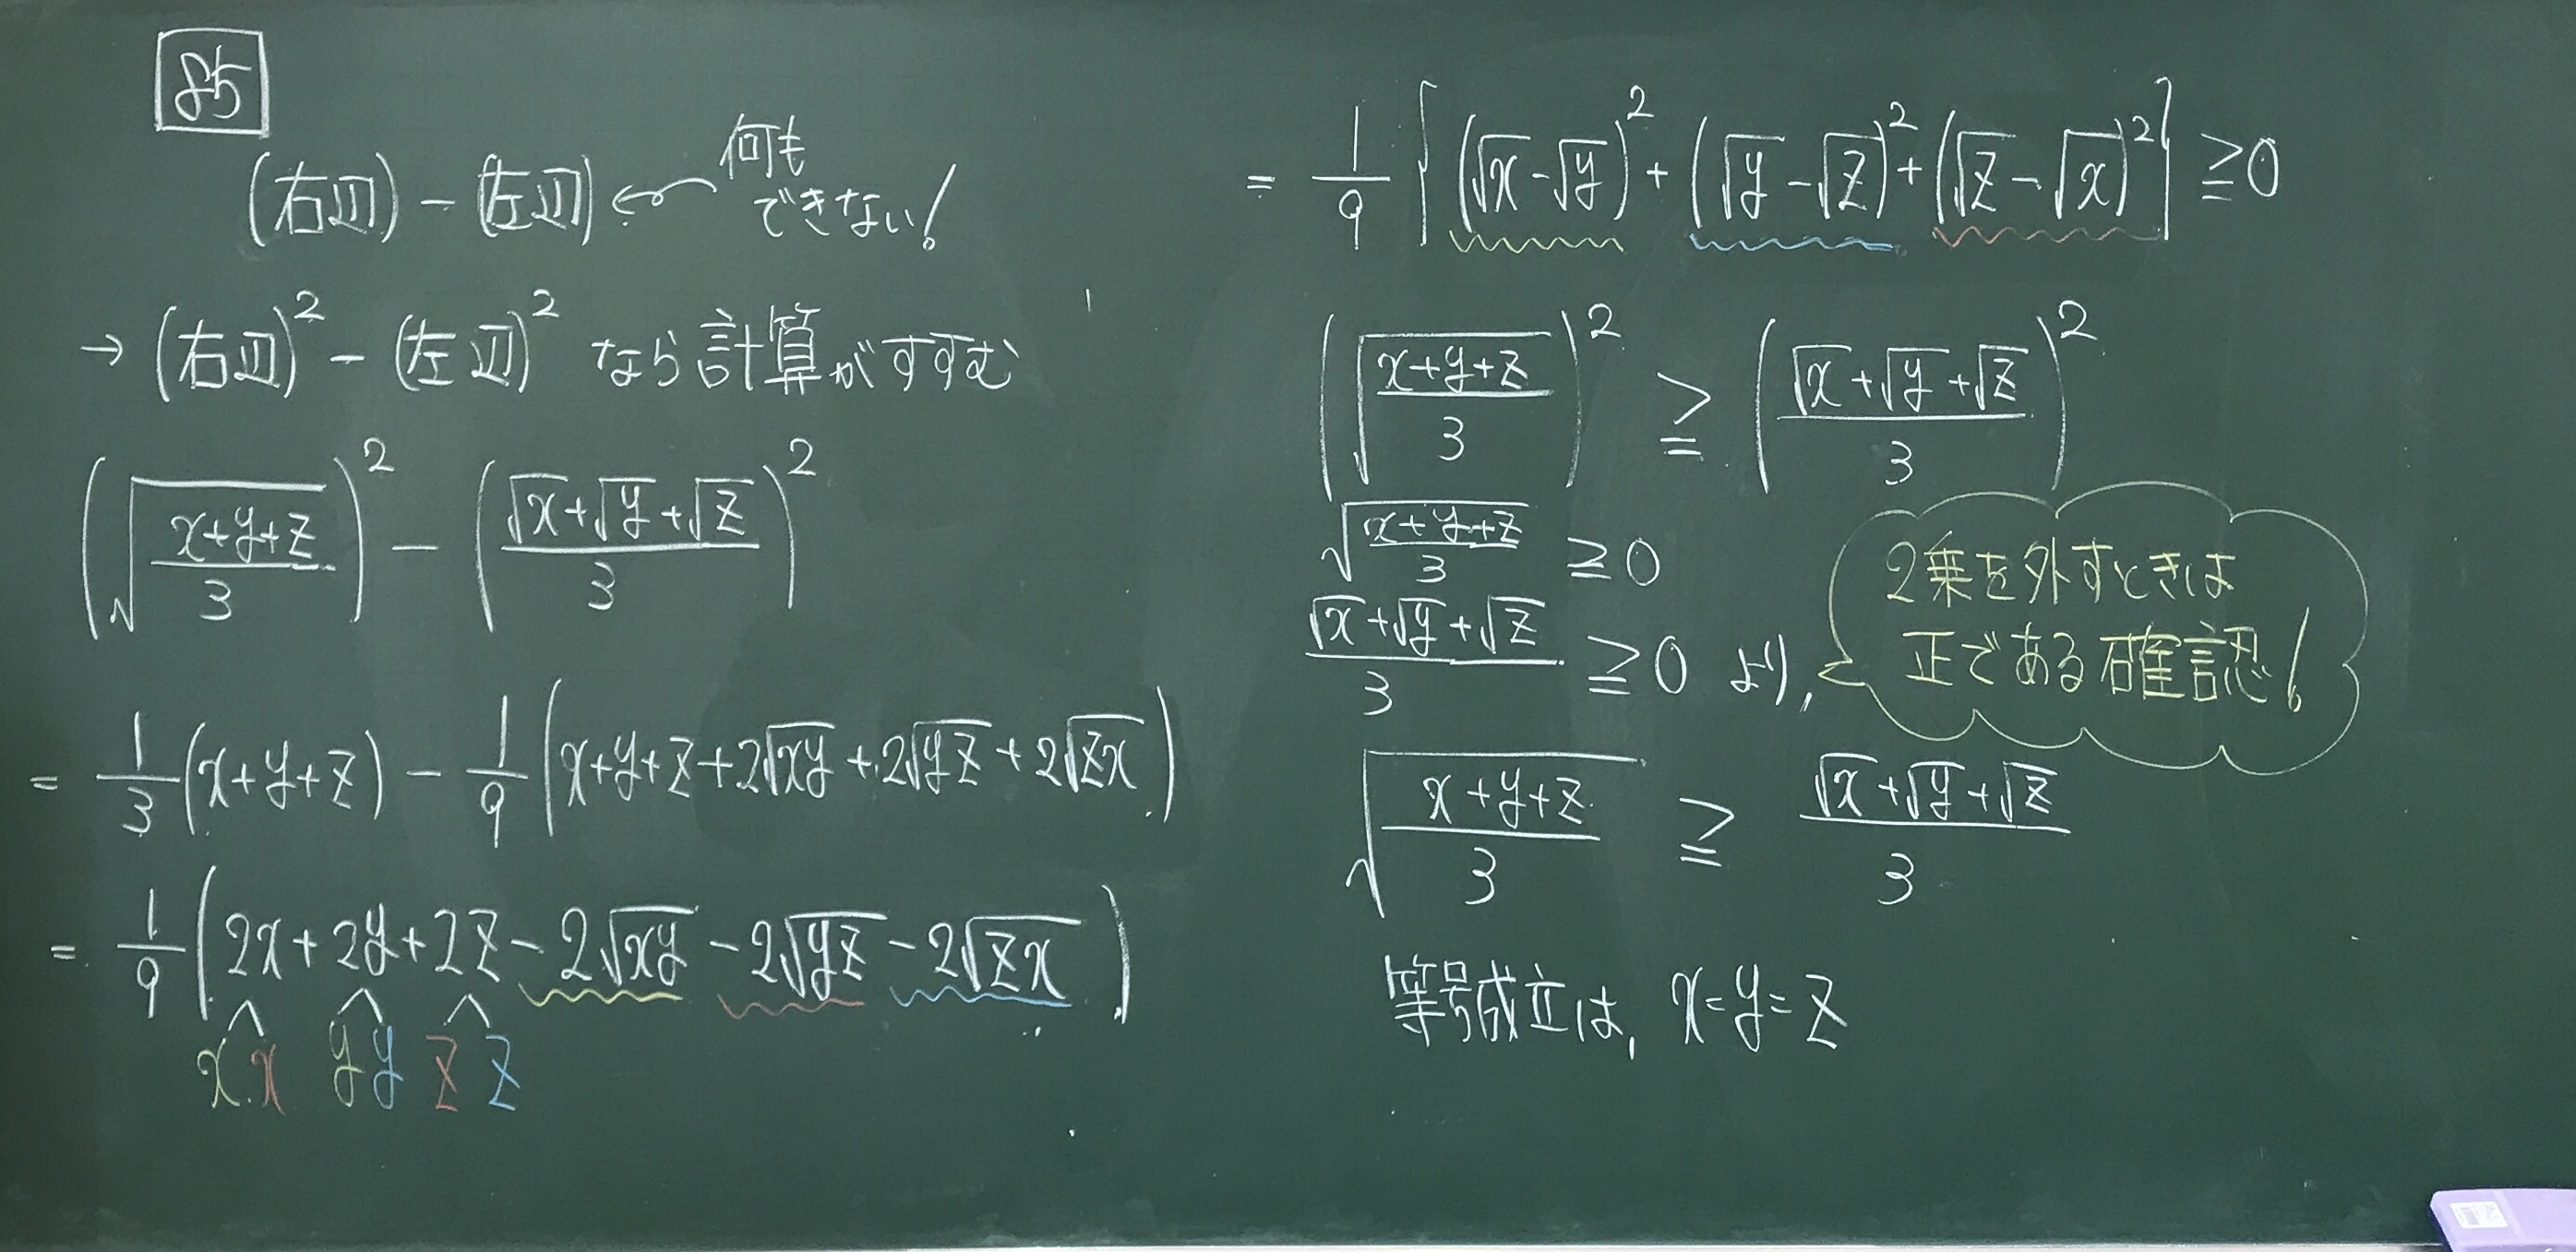 85
(右辺) - (左辺) ← 何も
できない!
→ (右辺)² - (左辺)² なら計算がすすむ
(√((x+y+z)/3))² - ((√x+√y+√z)/3)²
= 1/3 (x+y+z) - 1/9 (x+y+z+2√xy+2√yz+2√zx)
= 1/9 (2x+2y+2z-2√xy-2√yz-2√zx)
x x y y z z
= 1/9 {(√x-√y)²+(√y-√z)²+(√z-√x)²} ≧0
(√((x+y+z)/3))² ≧ ((√x+√y+√z)/3)²
√((x+y+z)/3) ≧0
(√x+√y+√z)/3 ≧0 より,
2乗を外すときは
正である確認!
√((x+y+z)/3) ≧ (√x+√y+√z)/3
等号成立は, x=y=z